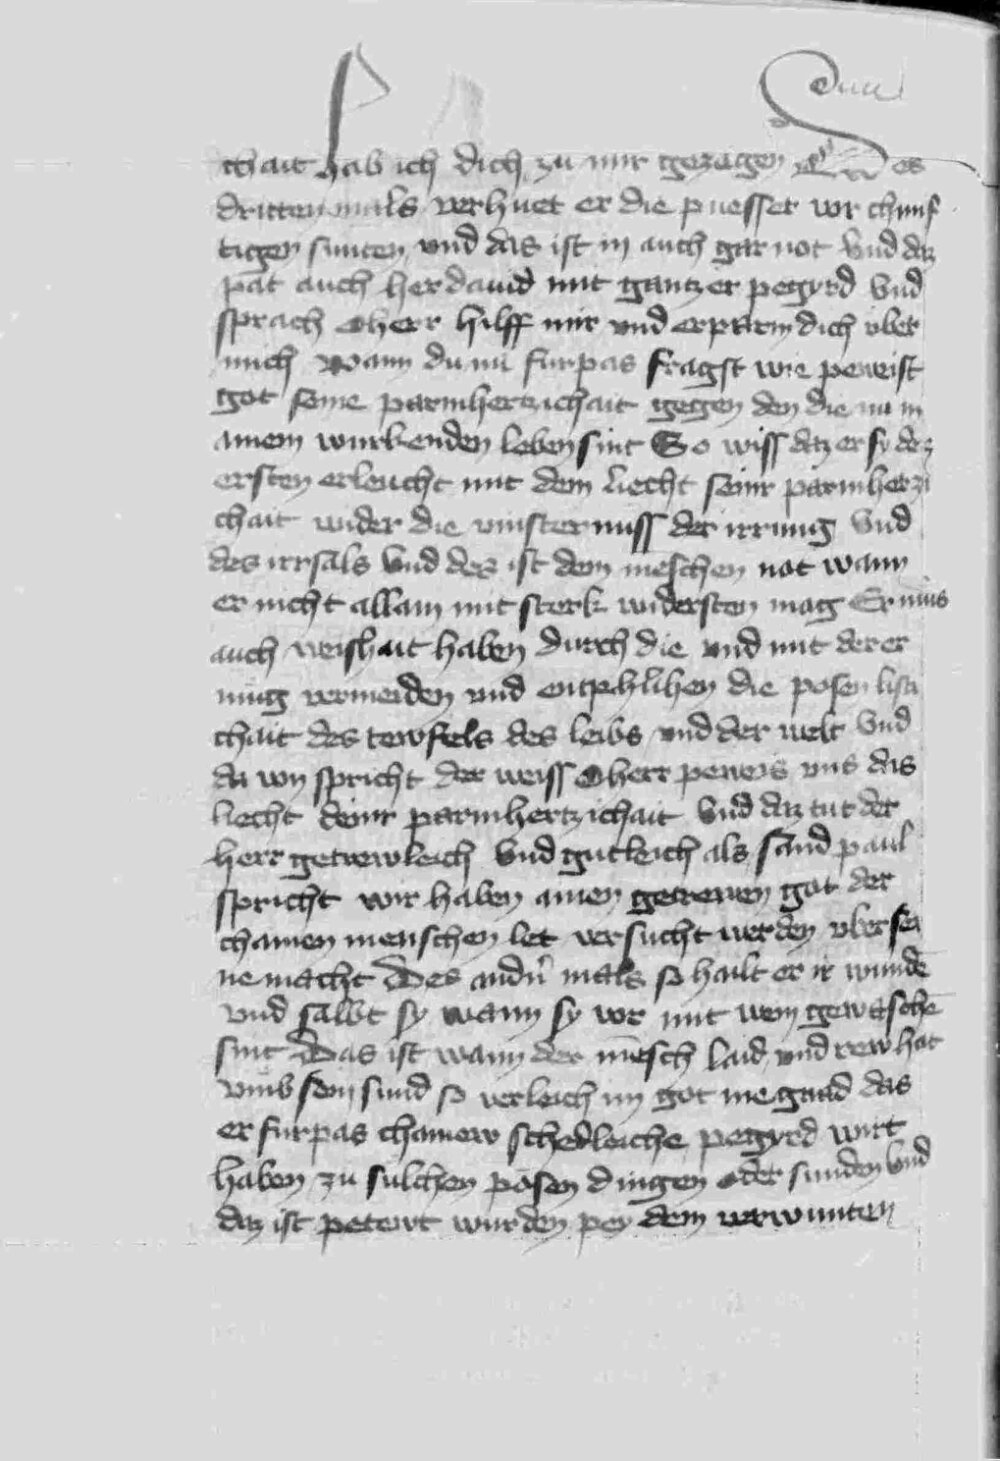 chait hab ich dich zu mir gezogen Des
dritten mals verhuet er die puesser vor chunf
tigen sunten und das ist in auch gar not Vnd daz
pat auch her dauid mit gantzer pegyrd Vnd
sprach O herr hilff mir und erparm dich uber
mich wann du nu furpas fragst wie peweist
got seine parmhertzichait gegen den die nu in
ainem wurkenden leben sint So wiss daz er sy des
ersten erleucht mit dem liecht seinr parmherzi
chait wider die vinsternuss der irrung Vnd
des irrsals Vnd des ist dem meschen not wann
er nicht allain mit sterk widersten mag Er mus
auch weishait haben durch die vnd mit der er
mug vermeiden vnd entphlihen die posen listi
chait des tewfels des leibs vnd der welt Vnd
da von spricht der weiss O herr peweis vns das
liecht deinr parmhertzichait Vnd daz tut der
herr getrewleich Vnd gutleich als sand paul
spricht wir haben ainen getrewen got der
chainen menschen let versucht werden vber sei
ne macht Des andn mals so hailt er ir wunde
vnd salbt sy wann sy vor mit wein gewasche
sint Das ist wann der mesch laid vnd rew hat
vmb sein sund so verleich im got die gnad das
er furpas chainew schedleiche pegyrd wirt
haben zu sulchen posen dingen oder sunden Vnd
daz ist petewt wurden pey dem verwunten